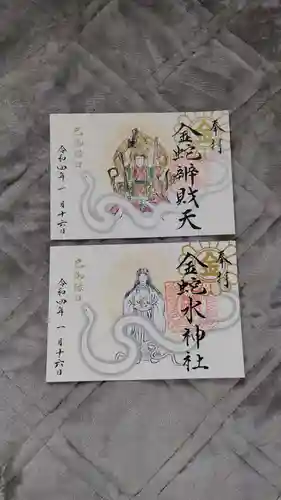 奉拝
金蛇辨財天
巳の縁日
令和四年一月十六日
奉拝
金蛇水神社
巳の縁日
令和四年一月十六日